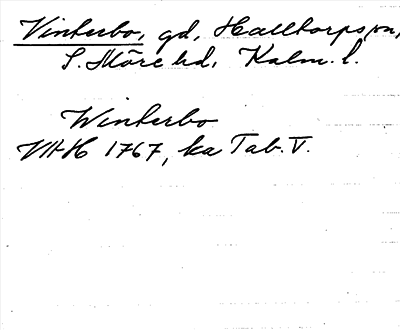 Vinterbo, gd, Halltorps sn,
S. Möre hd, Kalm. l.
Winterbo
VHH 1767, ka Tab. V.